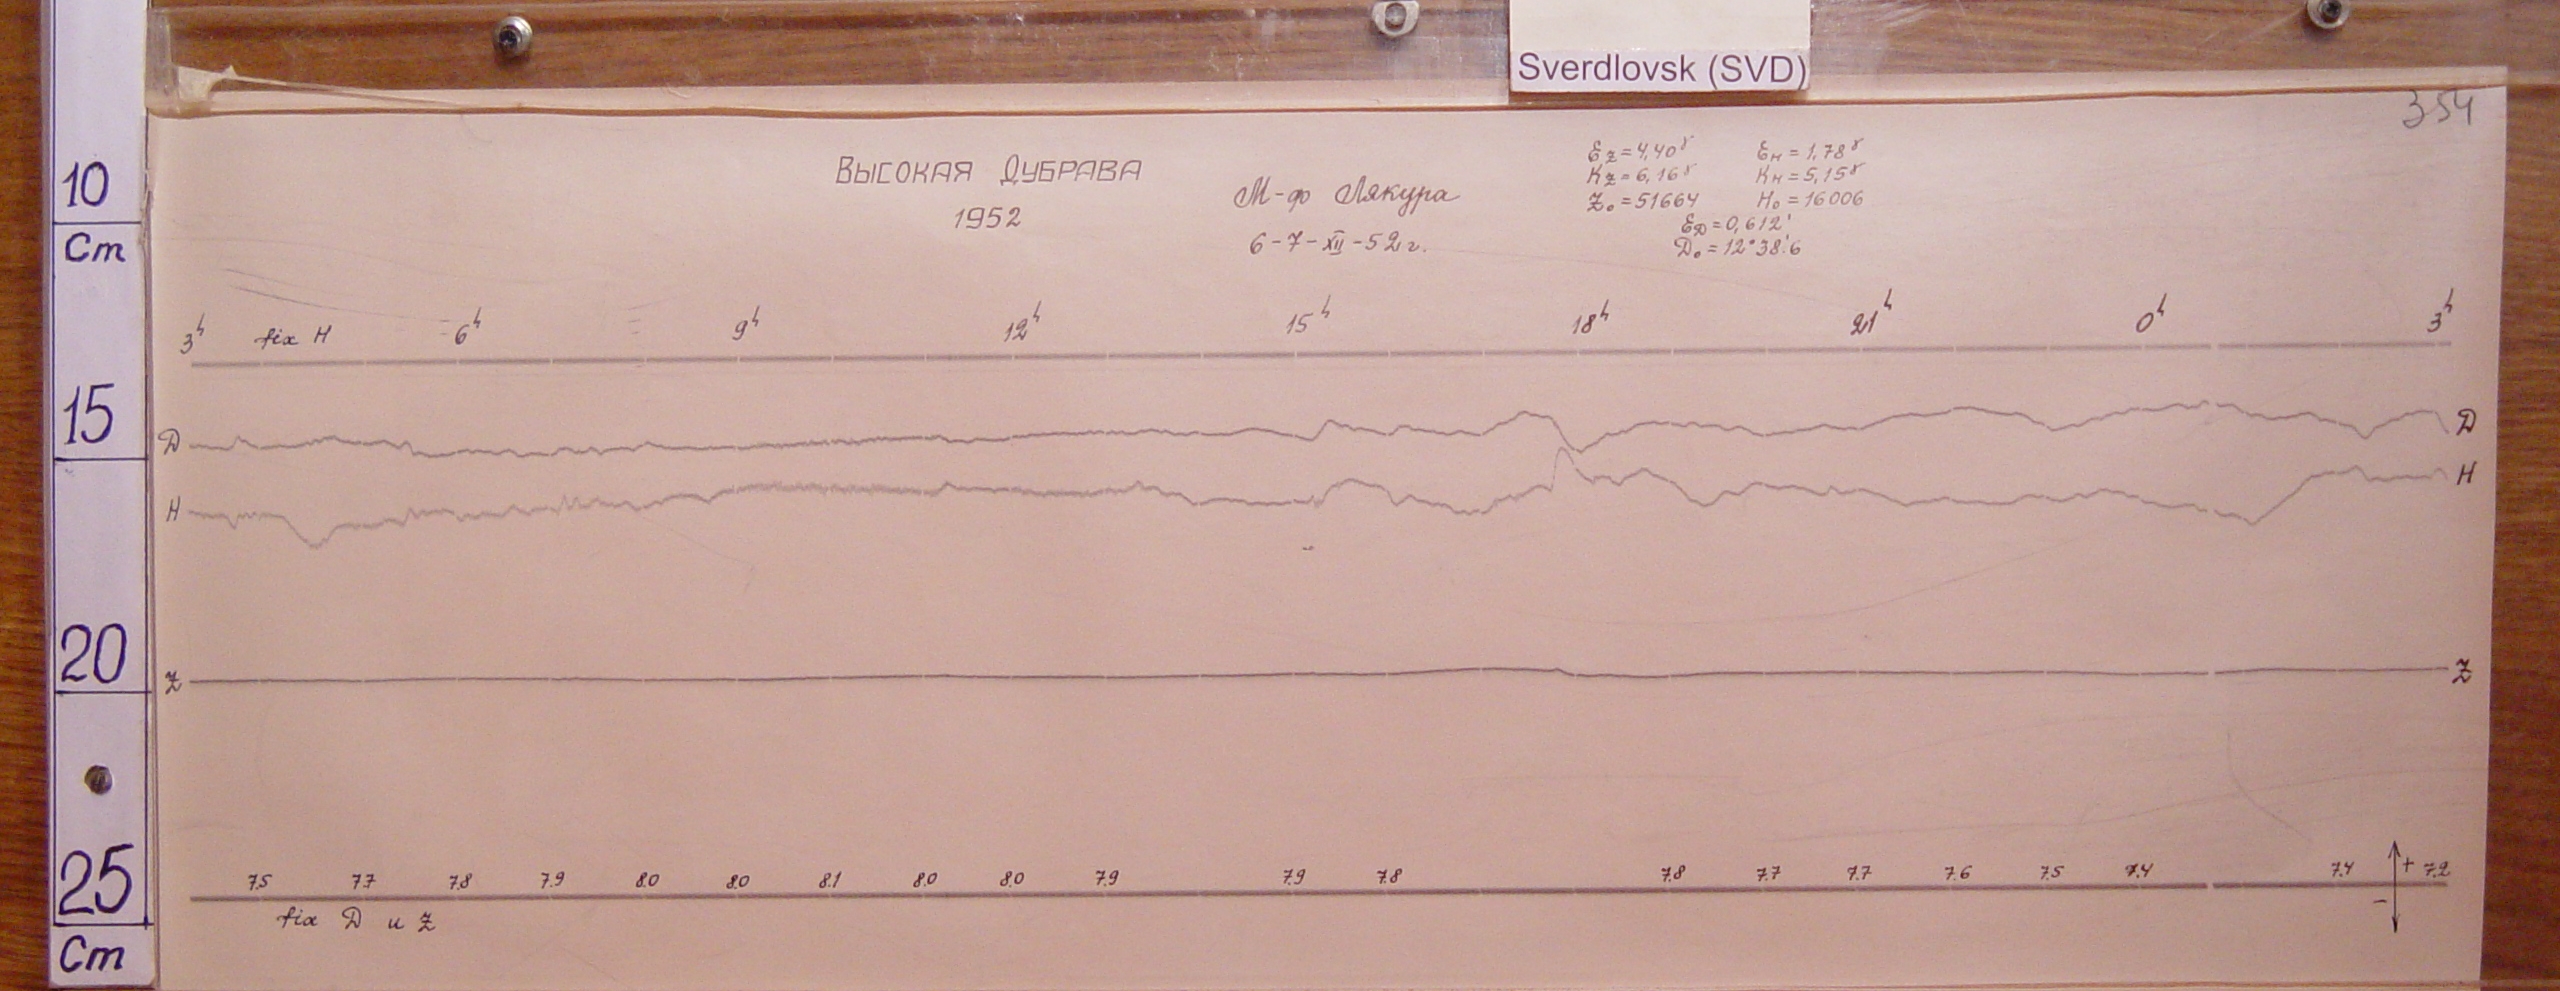 Sverdlovsk (SVD)
354
ВЫСОКАЯ ДУБРАВА
1952
М-ф Лякура
6-7-XII-52 г.
Ez=4,40γ EH=1,78γ
Kz=6,16γ KH=5,15γ
Z₀=51664 H₀=16006
ED=0,612'
D₀=12°38'.6
10
Cm
15
20
25
Cm
3h 6h 9h 12h 15h 18h 21h 0h 3h
fix H
D D
H H
Z Z
7.5 7.7 7.8 7.9 8.0 8.0 8.1 8.0 8.0 7.9 7.9 7.8 7.8 7.7 7.7 7.6 7.5 7.4 7.4 + 7.2
-
fix D и Z